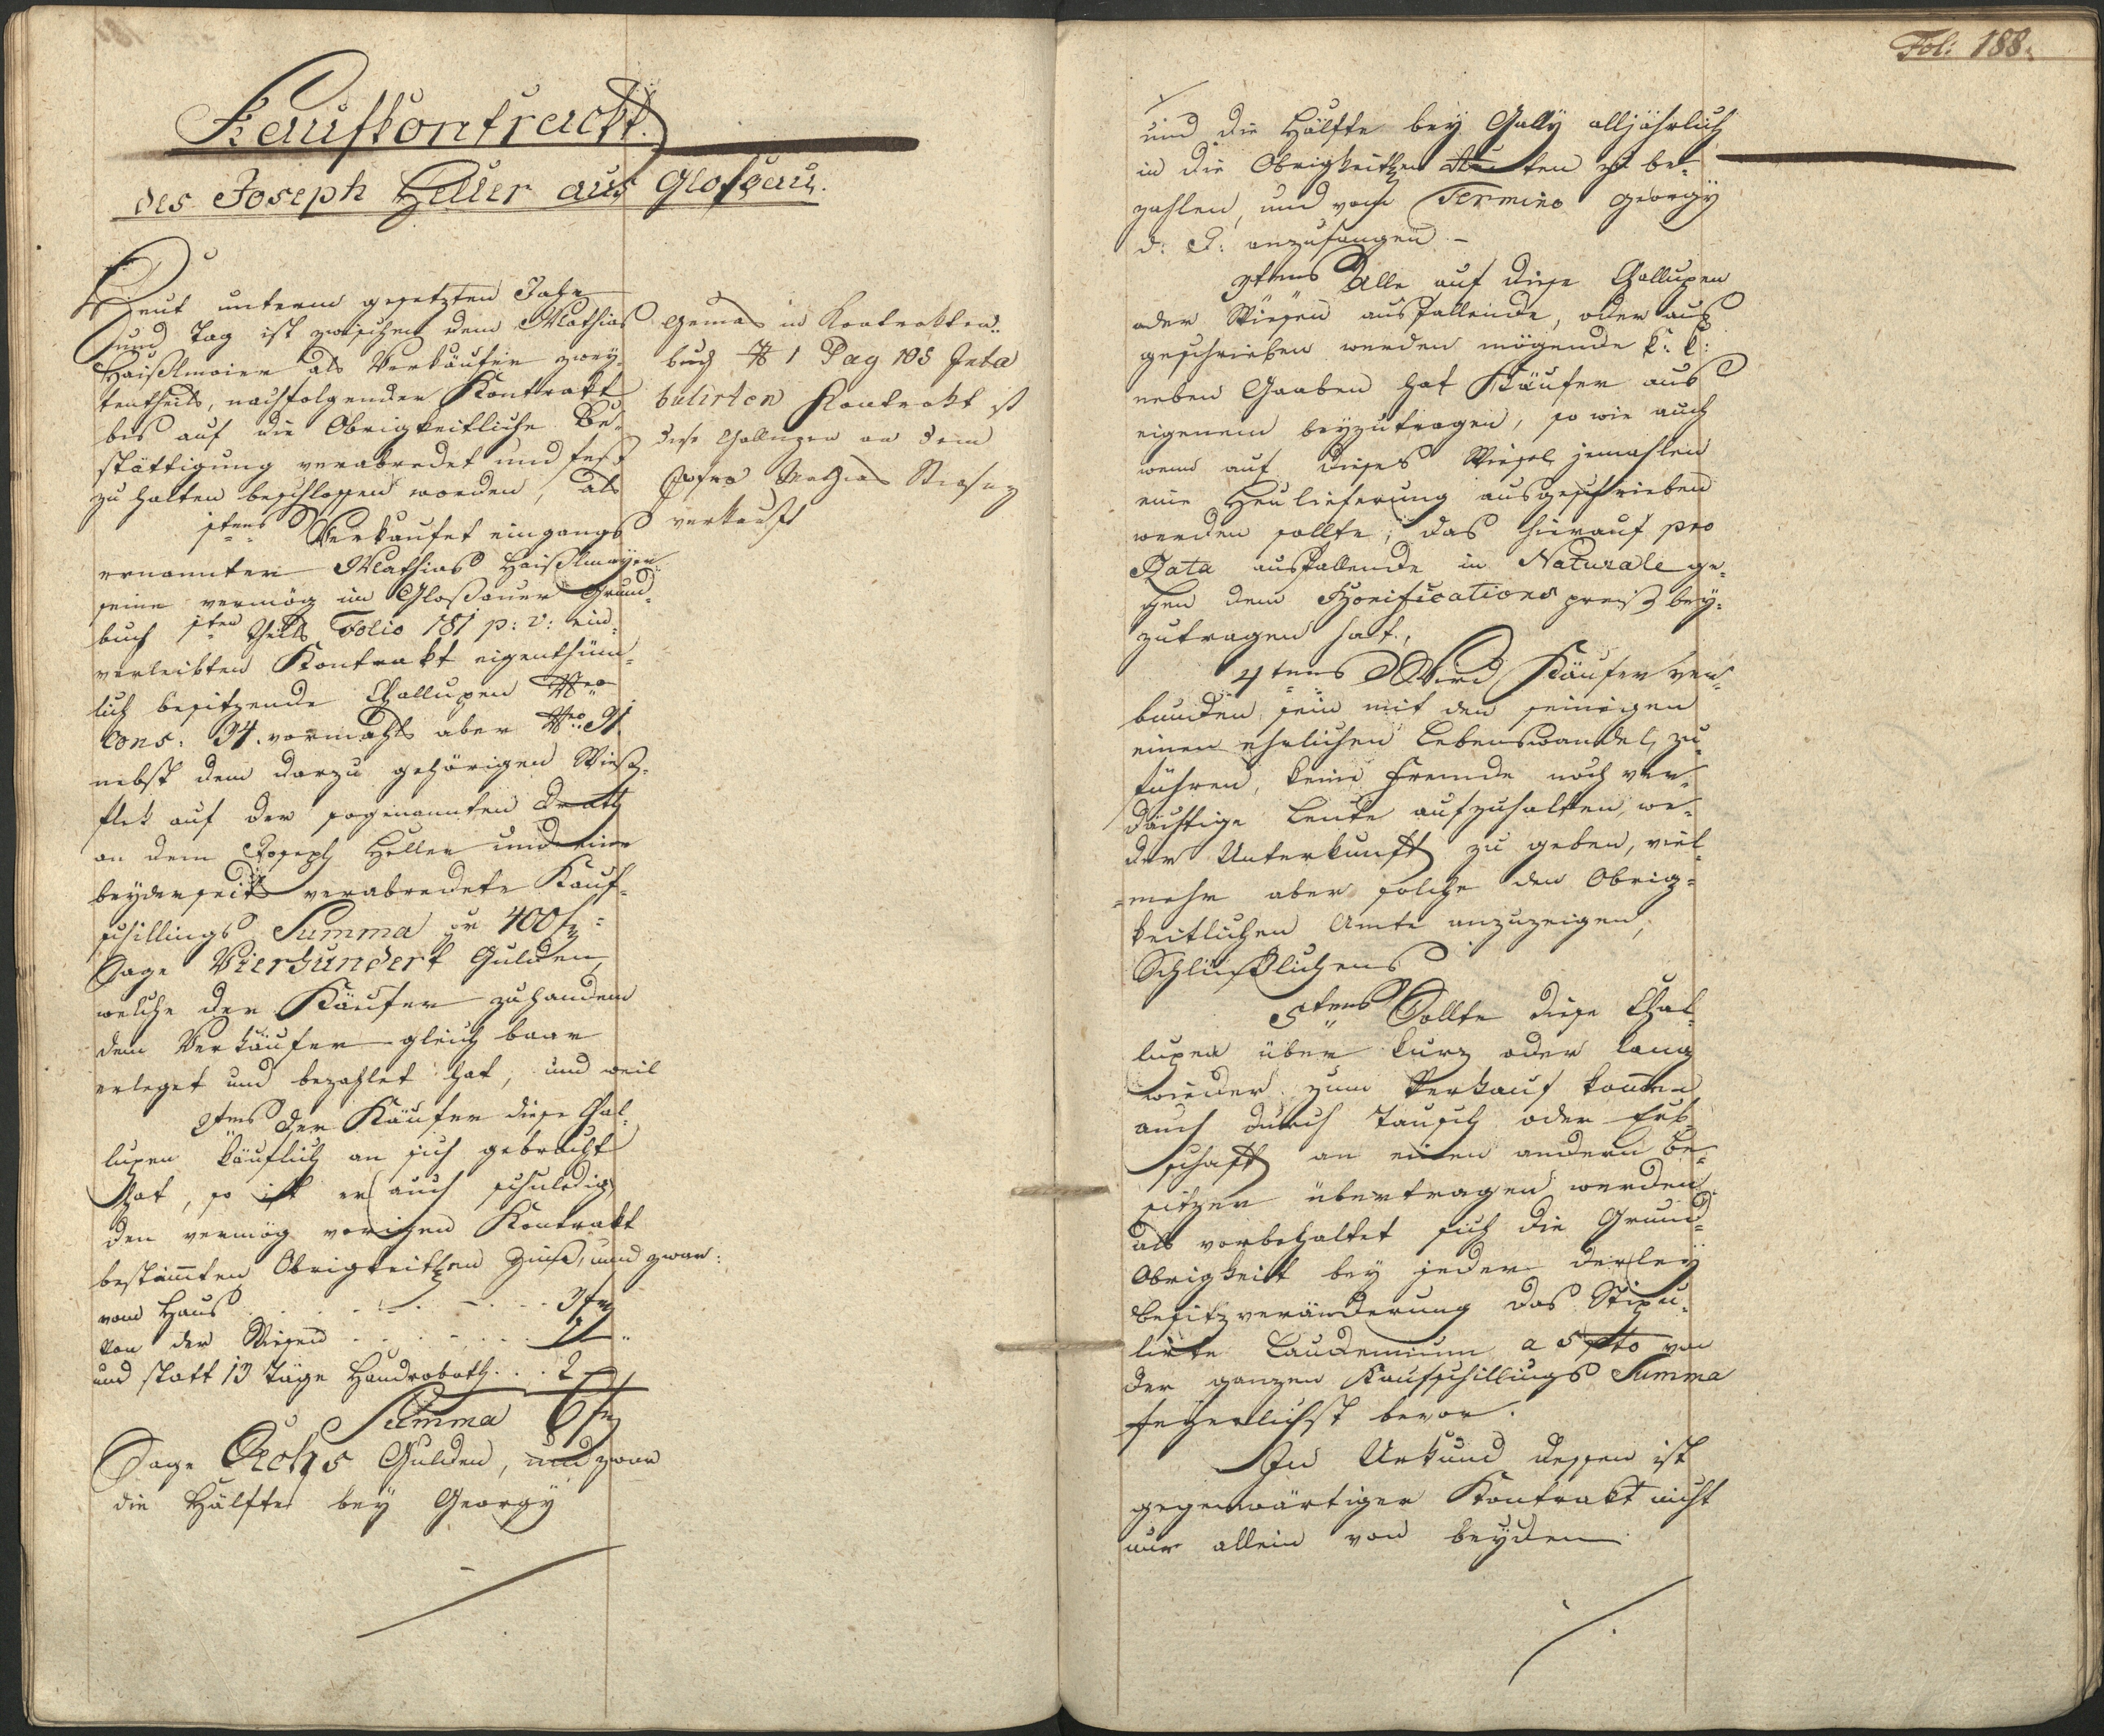 Kaufkontrackt.
des Joseph Heller aus Glosau.
Heut unterm gesetzten Jahr
und Tag ist zwischen dem Mathias
Haißlmaier als Verkäufer zwey-
tentheils, nachfolgender Kontrakt
bis auf die Obrigkeitliche Be-
stättigung verabredet und fest
zu halten beschlossen worden, als
1tens Verkaufet eingangs
ernannter Mathias Haißlmayer
seine vermög im Gloßauer Grund-
buch 1ten Theils Folio 181 p: v: ein-
verleibten Kontrakt eigenthüm-
lich besitzende Challupen Nro
Cons: 34. vormahls aber Nro 31.
nebst dem darzu gehörigen Wieß-
flek auf der sogenannten
an dem Joseph Heller um eine
beyderseits verabredete Kauf-
schillings Summa pr 400 f
Sage Vierhundert Gulden,
welche der Käufer zuhanden
dem Verkäufer gleich baar
erleget und bezahlet hat, und weil
2tens der Käufer diese Chal-
lupen käuflich an sich gebracht
hat, so ist er auch schuldig
den vermög vorigen Kontrakt
bestimten Obrigkeitlen Zinß, und zwar:
vom Haus . . . . . . 3 f
von der Wiesen . . . . . 1 "
und statt 13 Täge Handroboth . . . 2 "
Summa 6 f
Sage Sechs Gulden, und zwar
die Hälfte bey Georgÿ
Gemäs in Kontrakten-
buch N 1 Pag 105 Inta
bulirten Kontrakt ist
diese Challupen an dem
Mathias
verkauft
Fol: 188.
und die Hälfte bey Gally alljährlich
in die Obrigkeitlen Renten zu be-
zahlen, und vom Termino Georgÿ
d: J: anzufangen. –
3tens Alle auf diese Challupen
oder Wiesen ausfallende, oder aus
geschrieben werden mögende k: k:
neben Gaaben hat Käufer aus
eigenem beyzutragen, so wie auch
wenn auf dieses Wiesel jemahlen
eine Heulieferung ausgeschrieben
werden sollte, das hierauf pro
Rata ausfallende in Naturale ge-
gen dem Bonifications preiß bey-
zutragen hat.,
4tens Wird Käufer ver-
bunden sein mit den seinigen
einen ehrlichen Lebenswandel zu
führen, keine Fremde noch ver-
dächtige Leute aufzuhalten, we-
der Unterkunft zu geben, viel-
mehr aber solche den Obrig-
keitlichen Amte anzuzeigen,
Schlüßlichens
5tens Sollte diese Chal-
lupen über kurz oder lang
wieder zum Verkauf kommen
auch durch Tausch oder Erb-
schaft an einen andern Be-
sitzer übertragen werden
als vorbehaltet sich die Grund-
Obrigkeit bey jeder derley
Besitzveränderung das Stipu-
lirte Laudemium a 5 pcto von
der ganzen Kaufschillings Summa
feyerlichst bevor.
In Urkund dessen ist
gegenwärtiger Kontrakt nicht
nur allein von beyden